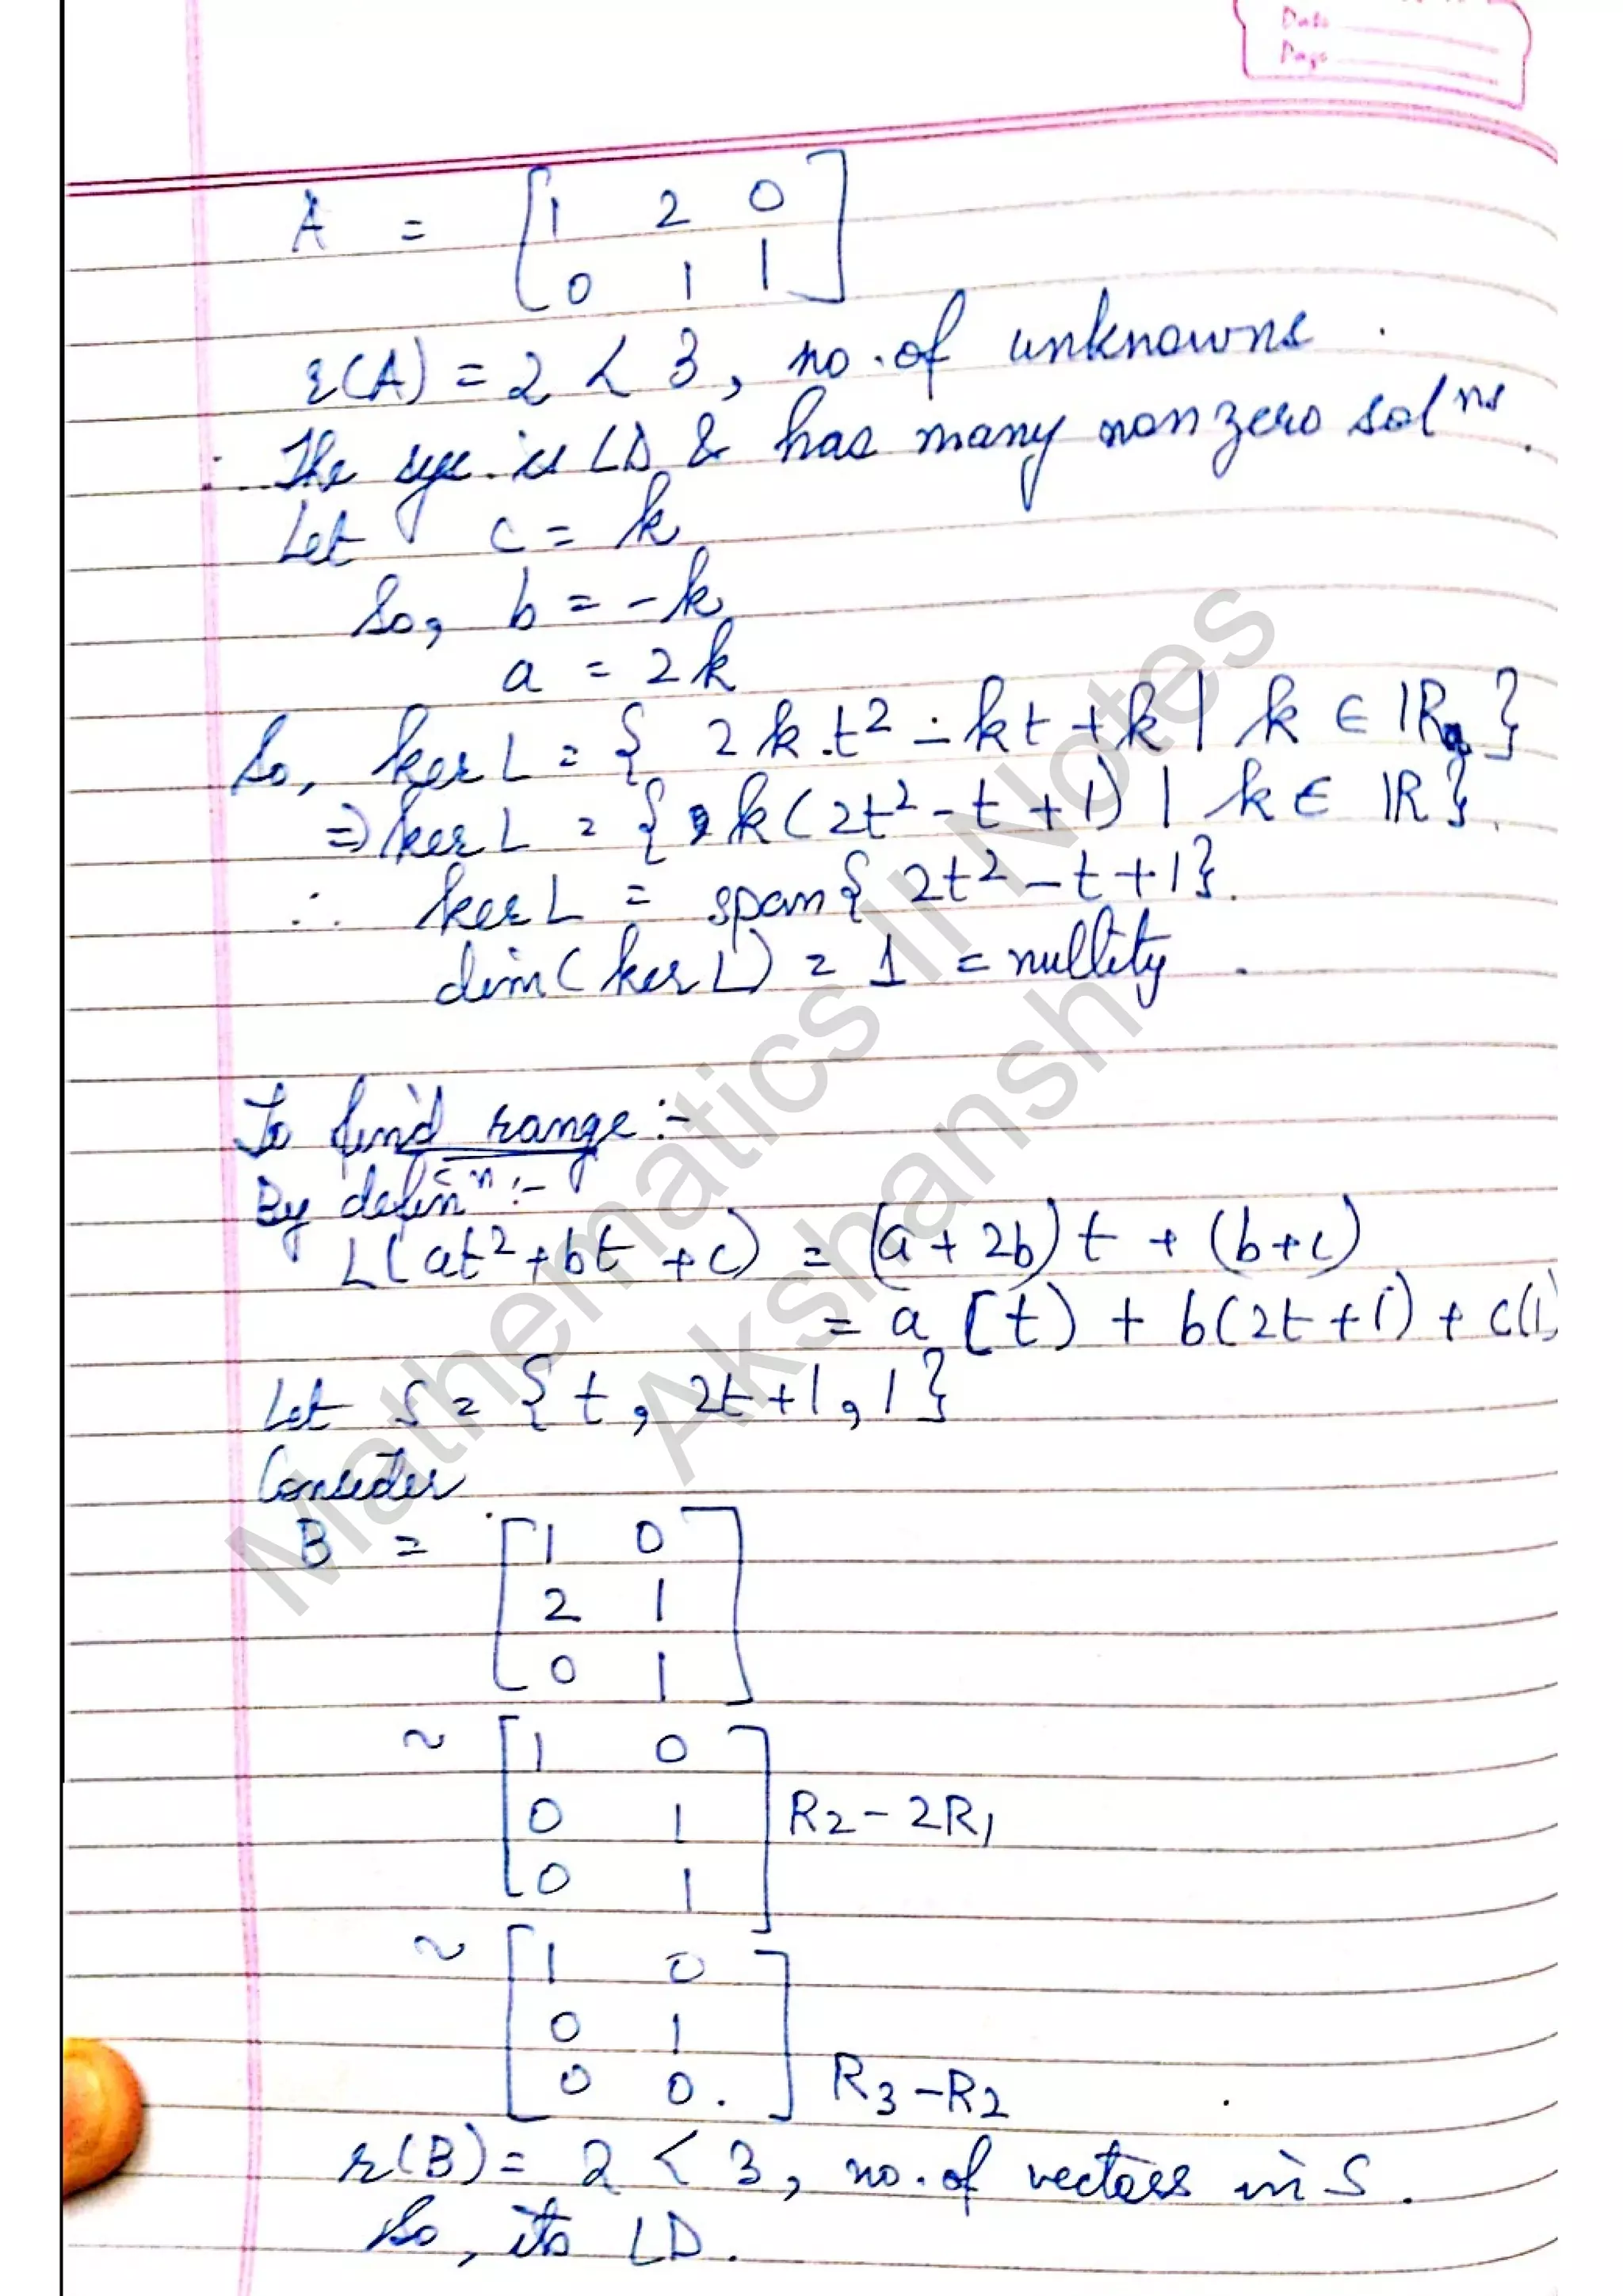 Date
Page
A = [ 1 2 0
0 1 1 ]
r(A) = 2 < 3, no. of unknowns.
∴ The sys. is LD & has many non zero solns.
Let c = k
So, b = -k
a = 2k
So, ker L = { 2k.t² - kt + k | k ∈ IR }
⇒ ker L = { k(2t² - t + 1) | k ∈ IR }.
∴ ker L = span{ 2t² - t + 1 }.
dim( ker L) = 1 = nullity.
To find range :-
By definⁿ :-
L( at² + bt + c) = (a + 2b) t + (b+c)
= a (t) + b(2t + 1) + c(1)
Let S = { t, 2t+1, 1 }
Consider
B = [ 1 0
2 1
0 1 ]
~ [ 1 0
0 1
0 1 ] R2 - 2R1
~ [ 1 0
0 1
0 0 . ] R3 - R2
r(B) = 2 < 3, no. of vectors in S.
So, its LD.
Mathematics II Notes
Akshansh